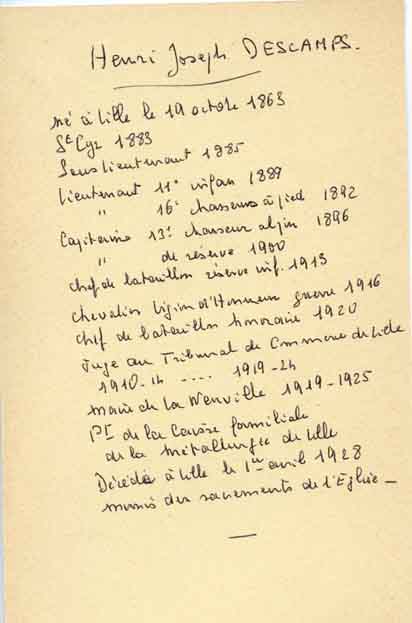 Henri Joseph DESCAMPS.
né à Lille le 19 octobre 1863
St Cyr 1883
Sous lieutenant 1885
Lieutenant 11e infan 1889
" 16e chasseurs à pied 1892
Capitaine 13e chasseur alpin 1896
" de réserve 1900
chef de bataillon réserve inf. 1913
chevalier légion d'Honneur guerre 1916
chef de bataillon honoraire 1920
Juge au Tribunal de Commerce de Lille
1910-14 .... 1919-24
maire de La Neuville 1919-1925
Pt de la Caisse familiale
de la métallurgie de Lille
Décédé à Lille le 1er avril 1928
munis des sacrements de l'Eglise —